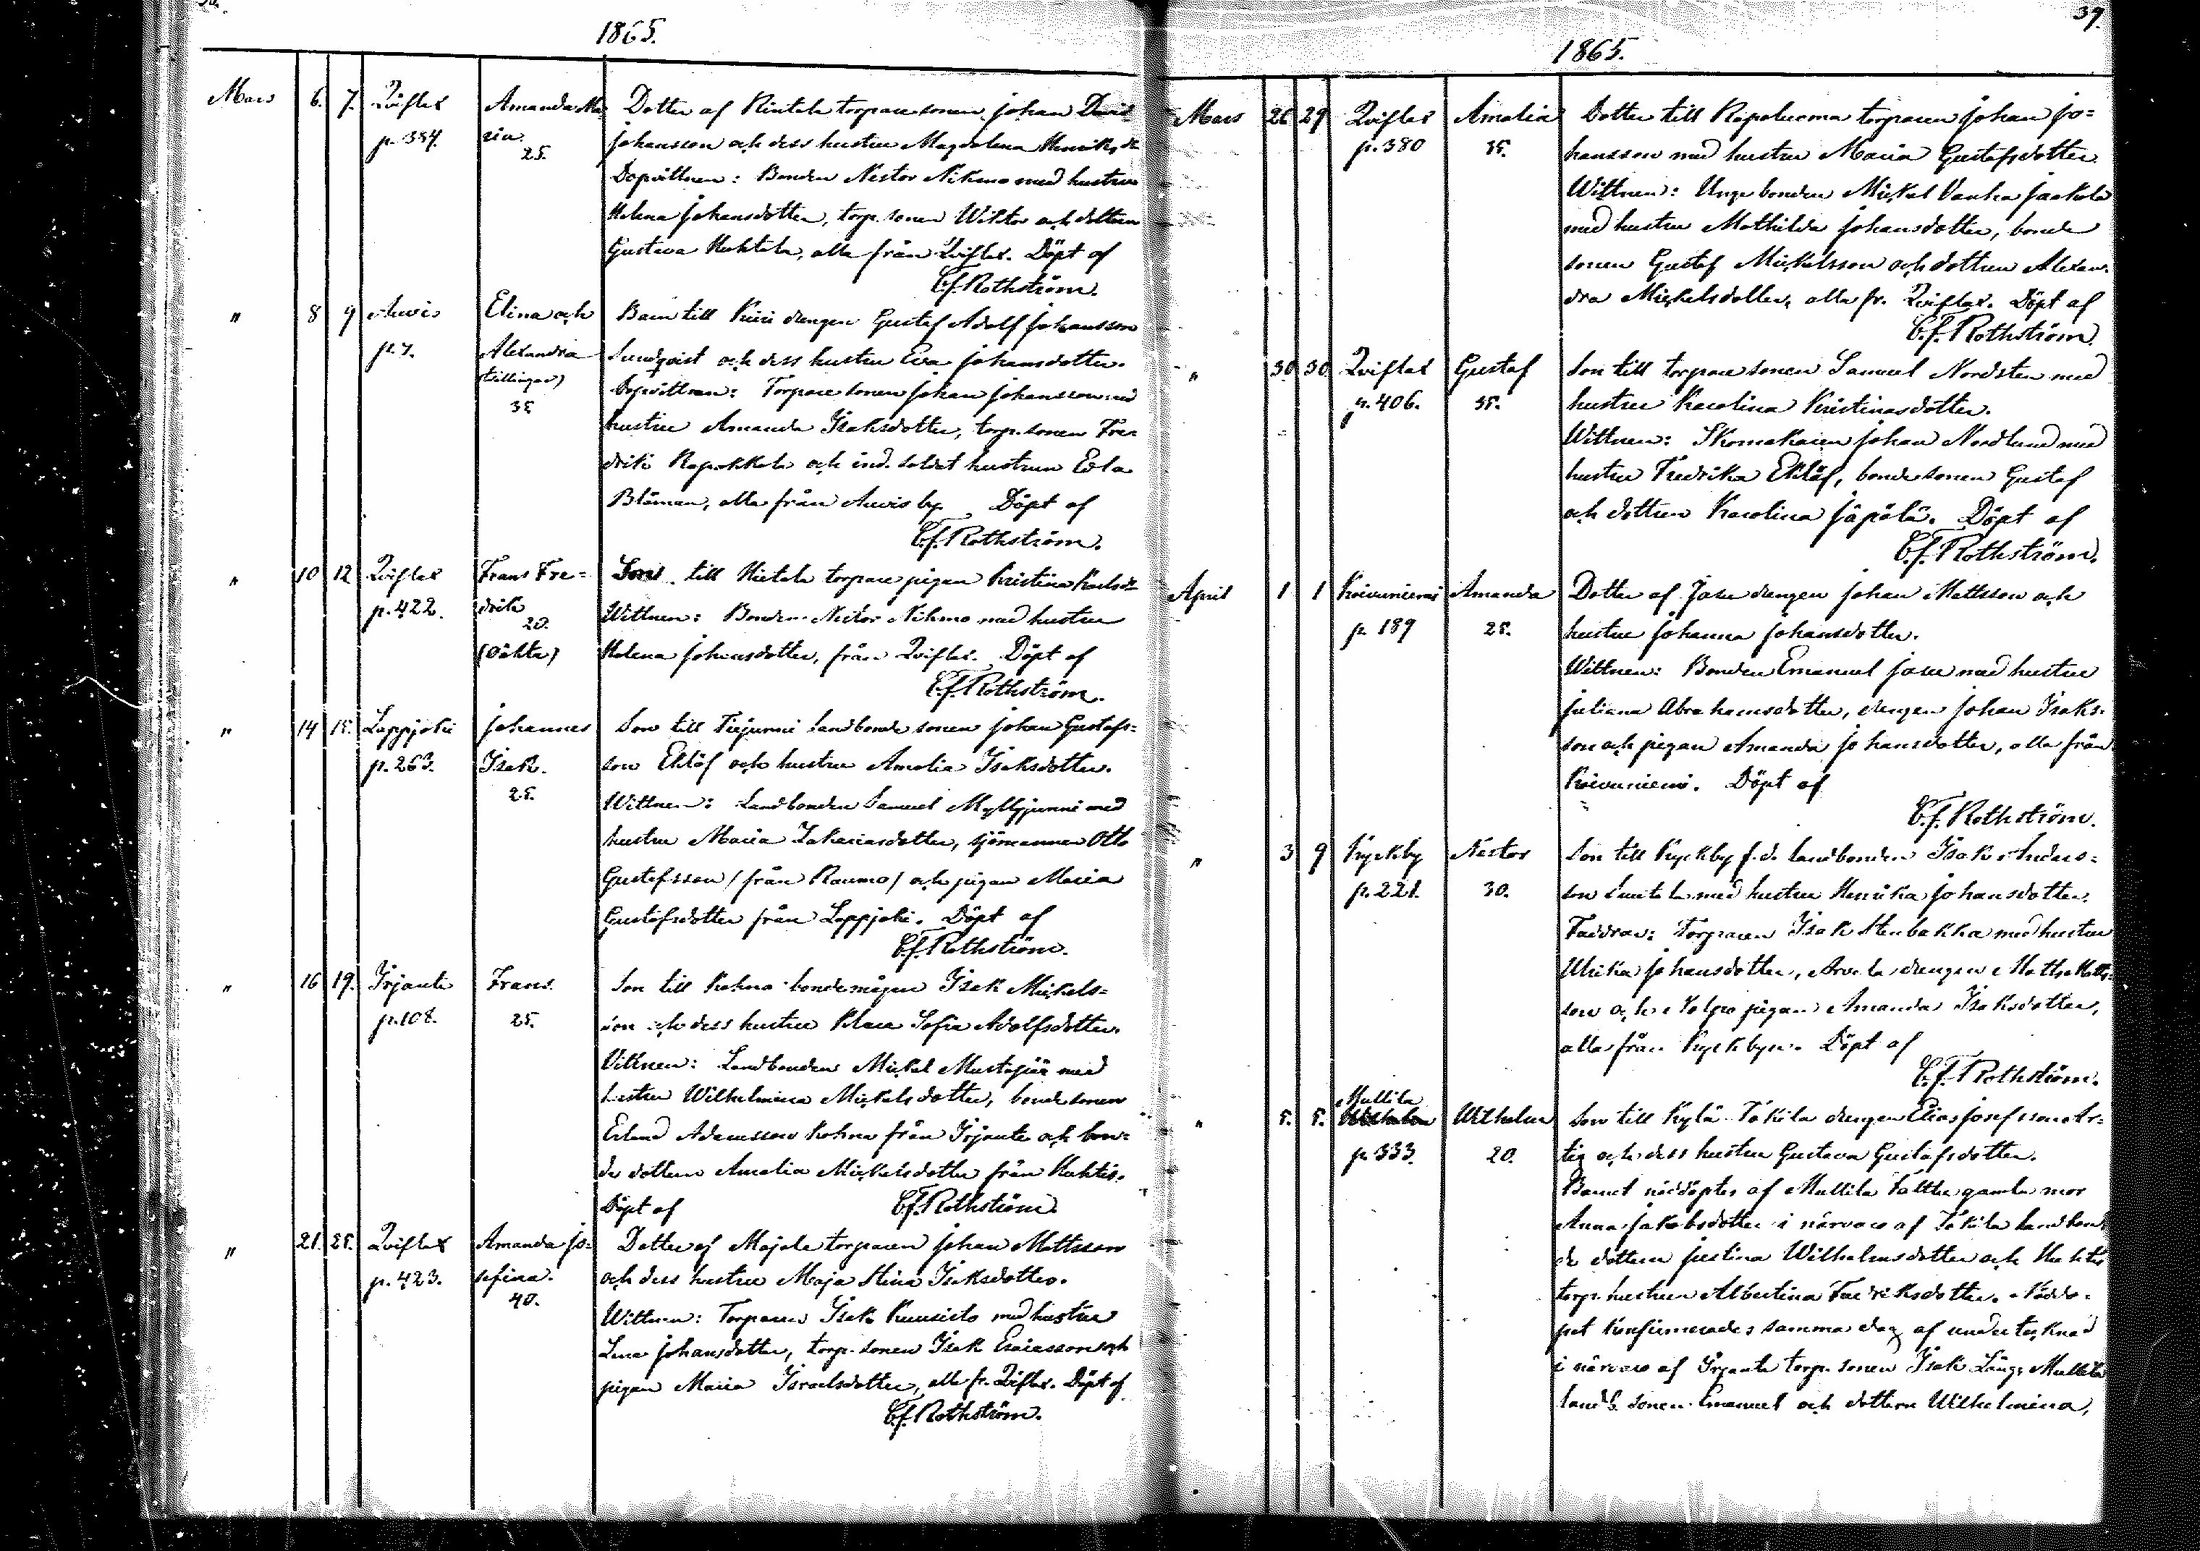 1865.
Mars 6. 7. Qviflax Amanda Ma- Dotter af Hintala torparesonen Johan David
p. 384. ria. Johansson och dess hustru Magdalena Henriksdr
25. Dopvittnen: Bonden Nestor Nihmo med hustru
Helena Johansdotter, torp. sonen Wiktor och dottren
Gustava Huhtala, alla från Qviflax. Döpt af
C.J. Rothström.
" 8 9 Auvis Elina och Barn till Kuri drengen Gustaf Adolf Johansson
p. 7. Alexandra Sundqvist och dess hustru Eva Johansdotter.
(tvillingar) Dopvittnen: Torparesonen Johan Johansson med
35 hustru Amanda Isaksdotter, torp. sonen Fre-
drik Rapokkola och ind. soldat hustrun Eva
Blåman, alla från Auvis by. Döpt af
C.J. Rothström.
" 10 12 Qviflax Frans Fre- Son till Hietala torpare pigan Kristina Karlsdr
p. 422. drik Wittnen: Bonden Nestor Nihmo med hustru
20.
(oäkta) Helena Johansdotter, från Qviflax. Döpt af
C.J. Rothström.
" 14 15. Lappjoki Johannes Son till Tiejunni landbonde sonen Johan Gustafs-
p. 263. Isak. son Eklöf och hustru Amalia Isaksdotter.
25. Wittnen: Landbonden Samuel Myllyjunni med
hustru Maria Zakariasdotter, sjömannen Otto
Gustafsson (från Raumo) och pigan Maria
Gustafsdotter från Lappjoki. Döpt af
C.J. Rothström.
" 16 19. Irjante Frans. Son till Kohna bondemågen Isak Mickels-
p. 108. 25. son och dess hustru Klara Sofia Adolfsdotter.
Vittnen: Landbonden Mickel Mustajää med
hustru Wilhelmina Mickelsdotter, bondesonen
Erland Adamsson Kohna från Irjante och bon-
de dottren Amalia Mickelsdotter från Huhtis.
Döpt af C.J. Rothström
" 21. 25. Qviflax Amanda Jo- Dotter af Majala torparen Johan Mattsson
p. 423. sefina. och dess hustru Maja Stina Isaksdotter.
40. Wittnen: Torparen Isak Kuusisto med hustru
Lena Johansdotter, torp. sonen Isak Esaiasson och
pigan Maria Israelsdotter, alla fr. Qviflax. Döpt af
C.J. Rothström.
39.
1865.
Mars 26 29 Qviflax Amalia Dotter till Rapoluoma torparen Johan Jo-
p. 380 35. hansson med hustru Maria Gustafsdotter
Wittnen: Unge bonden Mickel Vanha Jaakola
med hustru Mathilda Johansdotter, bonde
sonen Gustaf Mickelsson och dottren Alexan-
dra Mickelsdotter, alla fr. Qviflax. Döpt af
C.J. Rothström
" 30 30 Qviflax Gustaf Son till torpare sonen Samuel Nordsten med
p. 406. 35. hustru Karolina Kristinasdotter.
Wittnen: Skomakaren Johan Nordlund med
hustru Fredrika Eklöf, bondesonen Gustaf
och dottren Karolina Jäpölä. Döpt af
C.J. Rothström.
April 1 1 Koivuniemi Amanda Dotter af Jasu drengen Johan Mattsson och
p. 189 25. hustru Johanna Johansdotter.
Wittnen: Bonden Emanuel Jasu med hustru
Juliana Abrahamsdotter, drengen Johan Isaks-
son och pigan Amanda Johansdotter, alla från
Koivuniemi. Döpt af
C.J. Rothström.
" 3 9 Kyckby Nestor Son till Kyckby f.d. landbonden Isak Anders-
p. 221. 30. son med hustru Henrika Johansdotter.
Faddrar: Torparen Isak Stenbakka med hustru
Ulrika Johansdotter, Arvela drengen Matts Matts-
son och Volpo pigan Amanda Isaksdotter,
alla från Kyckbyn. Döpt af
C.J. Rothström.
Mullila
" 5. 5. Wilhelm Son till Kylä Täkilä drengen Elias Josefsson Ar-
p. 333. 20. tig och dess hustru Gustava Gustafsdotter.
Barnet nöddöptes af Mullila Valttu gamla mor
Anna Jakobsdotter i närvaro af Täkilä landbon-
de dottern Justina Wilhelmsdotter och Huhtis
torp. hustrun Albertina Fredriksdotter. Nöddo-
pet konfirmerades samma dag af undertecknad
i närvaro af Irjante torp. sonen Isak Läng, Mullila
landb. sonen Emanuel och dottern Wilhelmina,